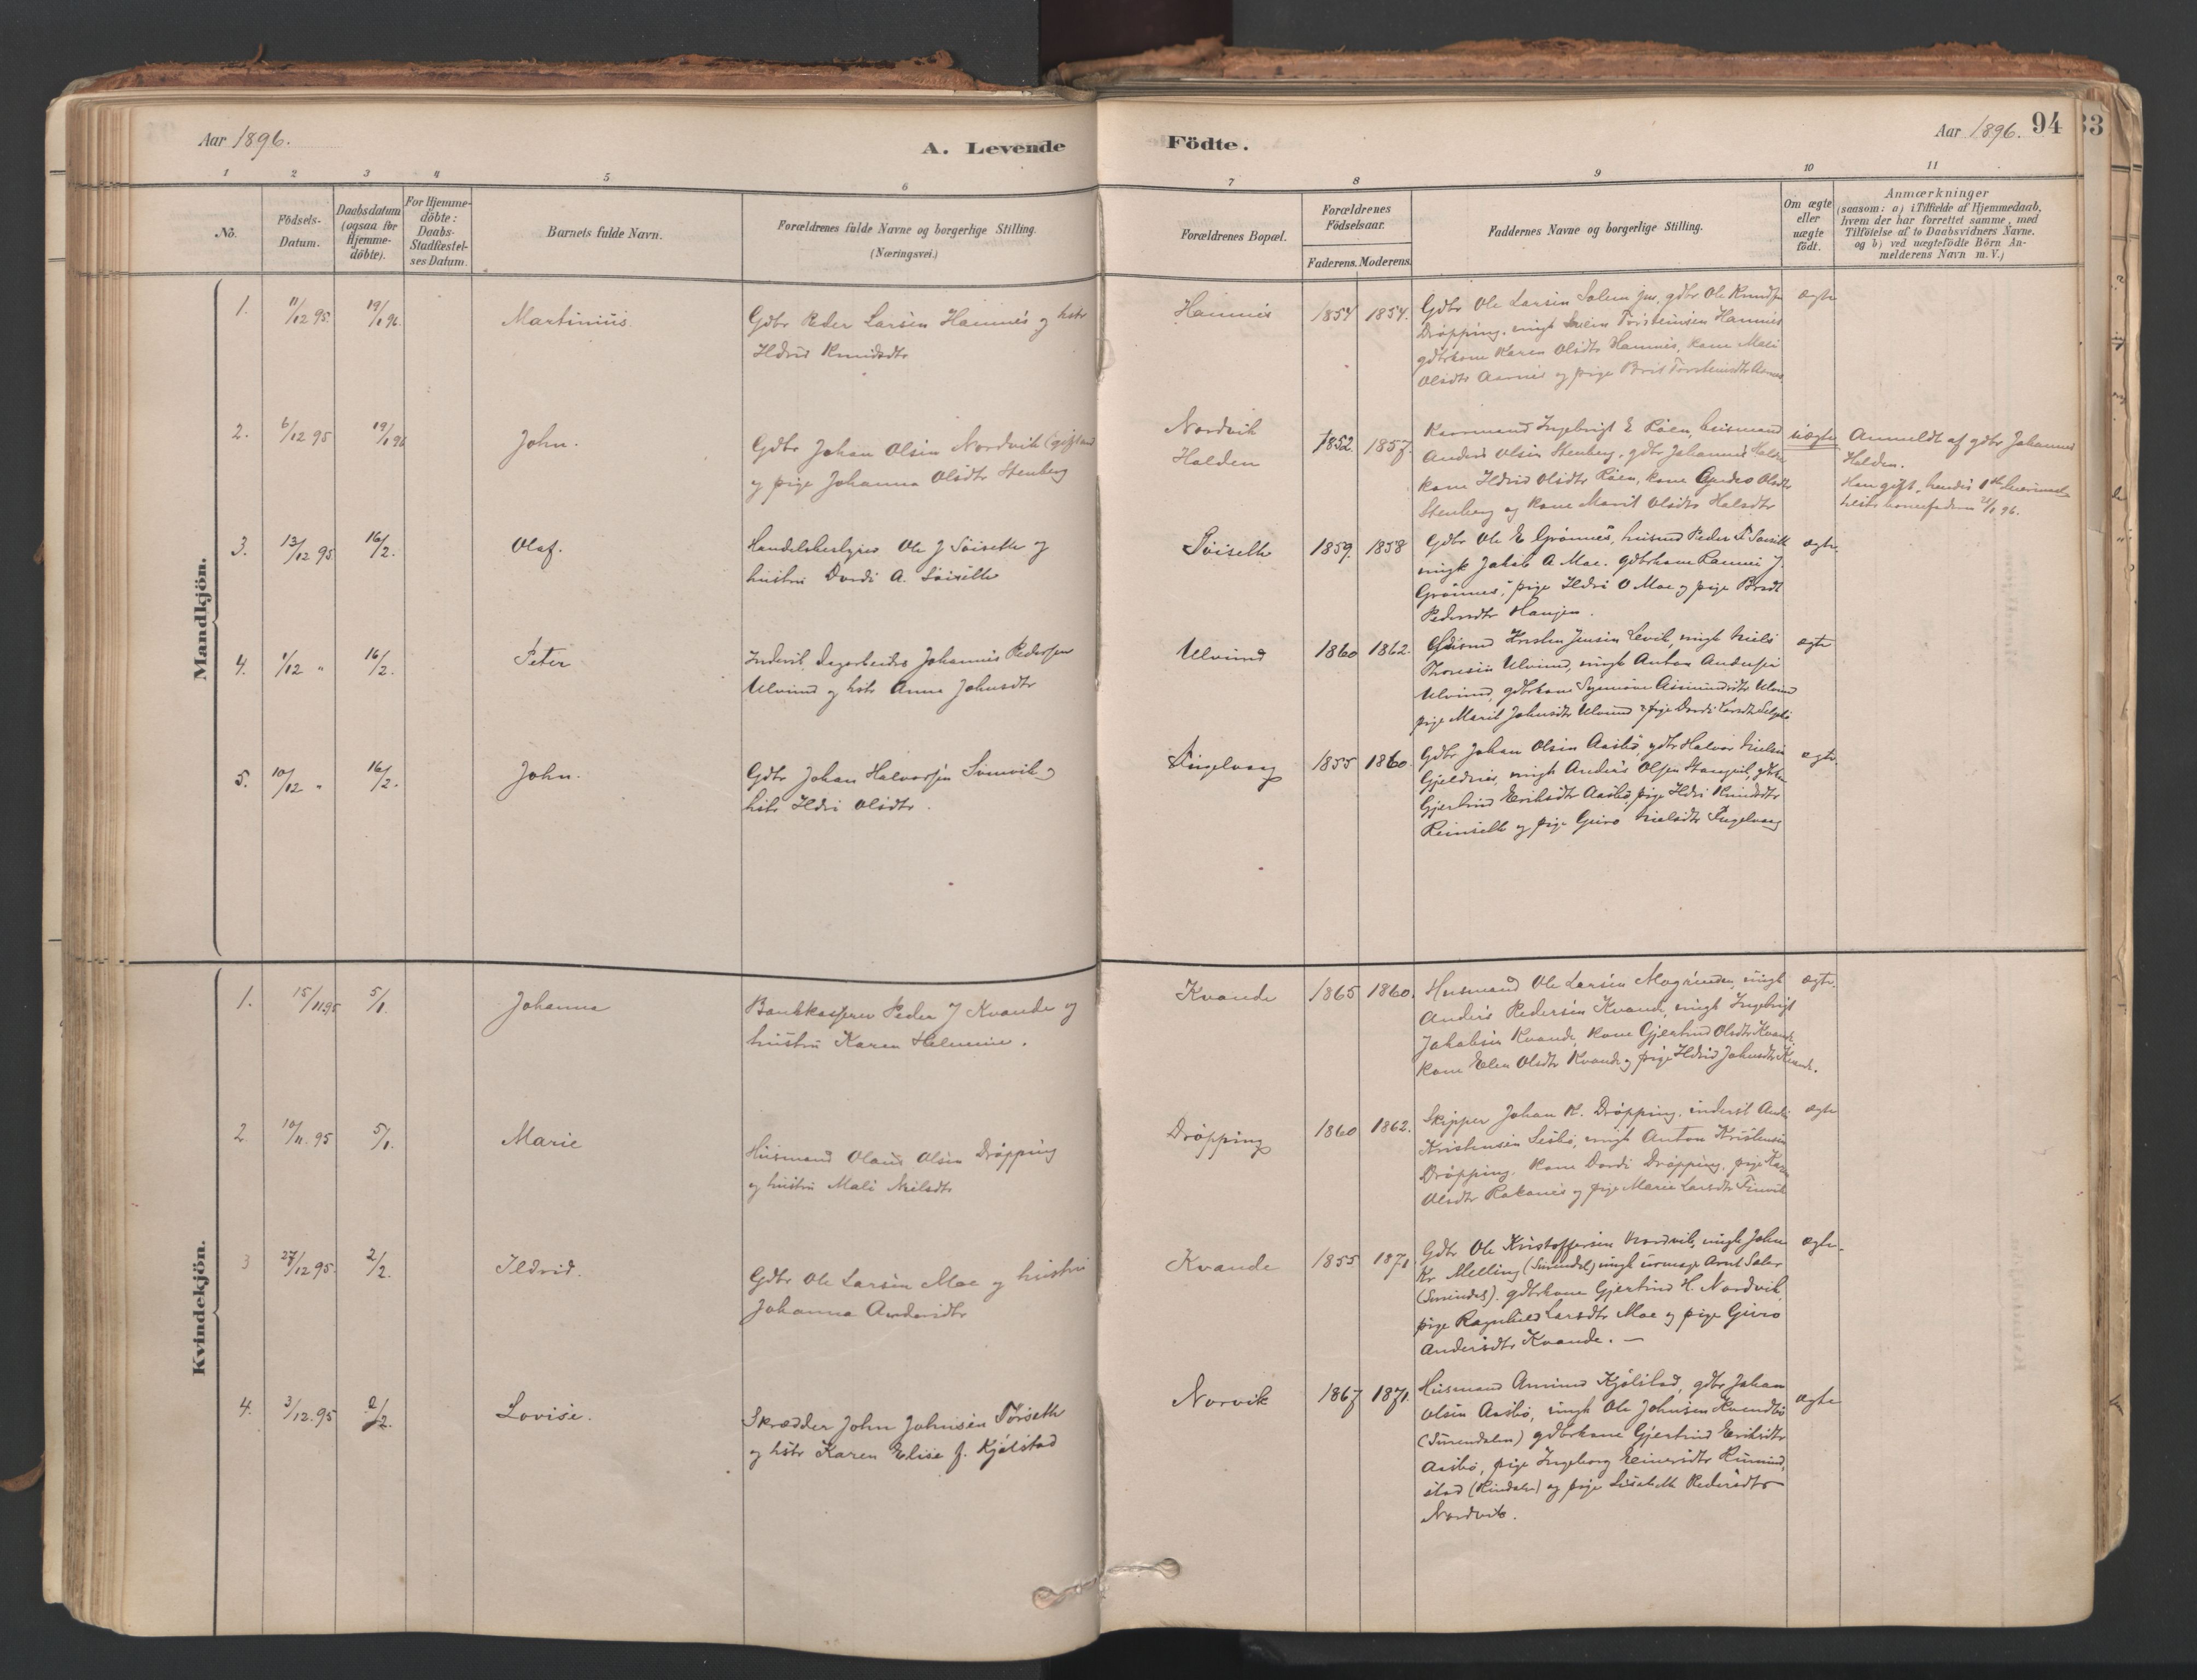 Aar 1896.
A. Levende
Födte.
Aar 1896.
94
33
1 2 3 4 5 6 7 8 9 10 11
No.
Födsels-Datum.
Daabsdatum (ogsaa for Hjemme-döbte).
For Hjemme-döbte: Daabs-Stadfæstel-ses Datum.
Barnets fulde Navn.
Forældrenes fulde Navne og borgerlige Stilling.
(Næringsvei.)
Forældrenes Bopæl.
Forældrenes Födselsaar.
Faderens. Moderens.
Faddernes Navne og borgerlige Stilling.
Om ægte eller uægte födt.
Anmærkninger
(saasom: a) i Tilfælde af Hjemmedaab,
hvem der har forrettet samme, med
Tilföielse af to Daabsvidners Navne,
og b) ved uægtefödte Börn An-
melderens Navn m. V.)
Mandkjön.
1. 11/12 95. 19/1 96. Martinius
Gdbr Peder Larsen Hamnes og hstr
Ildrid Knudsdtr
Hamnes 1854 1854.
Gdbr Ole Larsen Solem jun. gdbr Ole Knudsen
Dröpping, ungk Svein Torsteinsen Hamnes
gdbrkone Karen Olsdtr Hamnes, kone Mali
Olsdtr Aarnes og pige Brit Torsteinsdtr Aarnes
ægte
2. 6/12 95 19/1 96 John.
Gdbr Johan Olsen Nordvik (gift)
og pige Johanna Olsdtr Stenberg
Nordvik
Halden
1852. 1857.
Ingebrigt E Röen, husmand
Anders Olsen Stenberg, gdbr Johannes Halden
kone Ildrid Olsdtr Röen, kone Gudro Olsdtr
Stenberg og kone Marit Olsdtr Halden
uægte
Anmeldt af gdbr Johannes
Halden.
Han gift, hendes 1ste
3. 13/12 95 16/2. Olaf.
Handelsbestyrer Ole J Söiseth og
hustru Dordi A. Söiseth
Söiseth 1859. 1858
Gdbr Ole E Grönnes, husmd Peder
ungk Jakob A Moe. gdbrkone Rannei J.
Grönnes, pige Ildri O Moe og pige Brit
Pedersdtr Haugen.
ægte.
4. 1/12 " 16/2. Peter
Inderst, Dagarbeider Johannes Pedersen
Ulvund og hstr Anne Johnsdtr
Ulvund 1860 1862.
Husmd Kristen Jensen Levik, ungk Niels
Thoresen Ulvund, ungk Anton Andersen
Ulvund, gdbrkone Synnöve Asmundsdtr Ulvund
pige Marit Johnsdtr Ulvund & pige Dordi Larsdtr
ægte
5. 10/12 " 16/2. John.
Gdbr Johan Halvorsen Svinvik og
hstr Ildri Olsdtr.
Engelvang 1855 1860.
Gdbr Johan Olsen Aasbö, gdbr Halvor Nielsen
Gjeldnes, ungk Anders Olsen Stangvik, gdbrkone
Gjertrud Eriksdtr Aasbö, pige Ildri Knudsdtr
Reinseth og pige Guro Nielsdtr Engelvang
ægte.
Kvindekjön.
1. 15/11 95 5/1. Johanna
Bankkasserer Peder J Kvande og
hustru Karen Helmine.
Kvande 1865 1860.
Husmand Ole Larsen Mogrinden, ungk
Anders Pedersen Kvande, ungk Ingebrigt
Jakobsen Kvande, kone Gjertrud Olsdtr Kvande
kone Elen Olsdtr Kvande og pige Ildrid Johnsdtr Kvande.
ægte.
2 10/11. 95 5/1. Marie
Husmand Olaus Olsen Dröpping
og hustru Mali Nilsdtr
Dröpping 1860 1862.
Skipper Johan K. Dröpping, inderst Anders
Kristensen Lesbö, ungk Anton Kristensen
Dröpping, kone Dordi Dröpping, pige Karen
Olsdtr Rakanes og pige Marie Larsdtr
ægte
3 27/12 95. 2/2. Ildrid.
Gdbr Ole Larsen Moe og hustru
Johanna Andersdtr
Kvande 1855 1871
Gdbr Ole Kristoffersen Nordvik, ungk John
Kr Melling (Surendal) ungk urmager Arnt Sater
(Surendal). gdbrkone Gjertrud H. Nordvik,
pige Ragnhild Larsdtr Moe og pige Guro
Andersdtr Kvande. —
ægte.
4. 3/12. 95 2/2. Lovise.
Skrædder John Johnsen Torseth
og hstr Karen Elise f. Kjölstad
Norvik 1867 1871.
Husmand Amund Kjölstad, gdbr Johan
Olsen Aasbö, ungk Ole Johnsen Kvendbö
(Surendalen) gdbrkone Gjertrud Eriksdtr
Aasbö, pige Ingeborg Einersdtr
stad (Rindalen) og pige Lisabeth Pedersdtr
Nordvik.
ægte